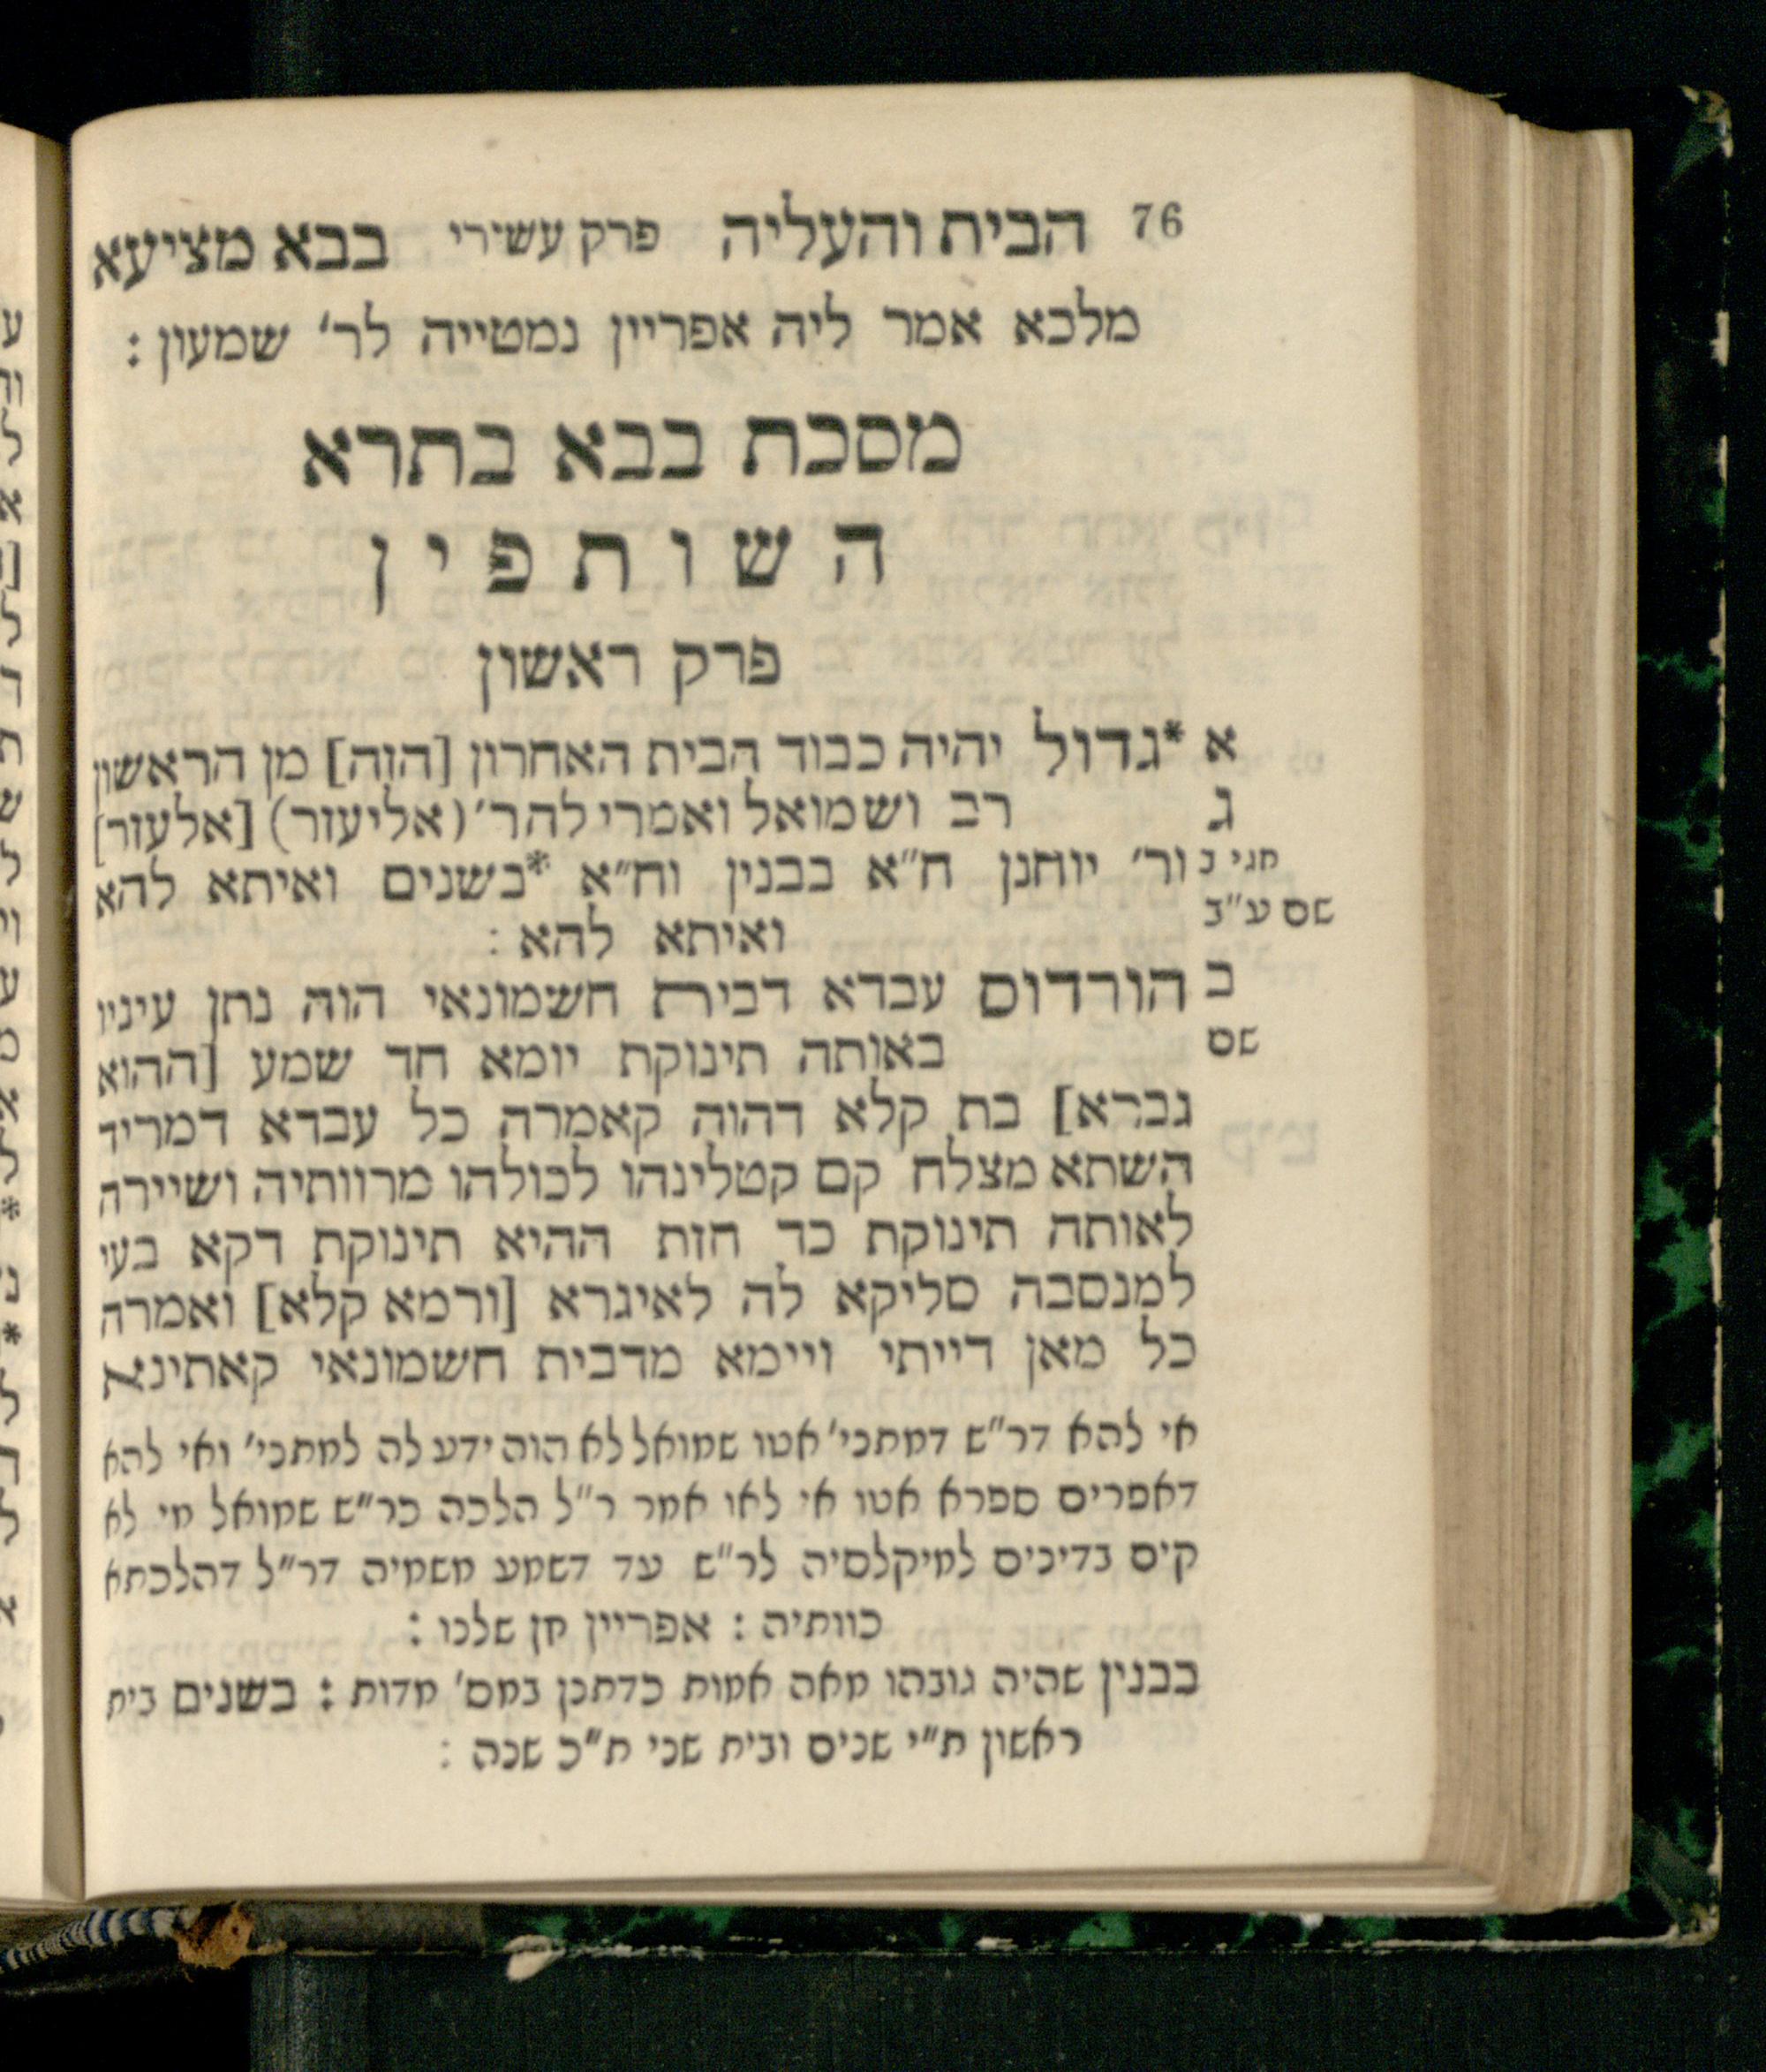 76 הבית והעליה פרק עשירי בבא מציעא
מלכא אמר ליה אפריין נמטייה לר׳ שמעון :
מסכת בבא בתרא
השותפין
פרק ראשון
א *גדול יהיה כבוד הבית האחרון [הזה] מן הראשון
ג רב ושמואל ואמרי לה ר׳ (אליעזר) [אלעזר]
חגי ב ור׳ יוחנן ח״א בבנין וח״א *בשנים ואיתא להא
שם ע״ב
ואיתא להא :
ב הורדוס עבדא דבית חשמונאי הוה נתן עיניו
שם באותה תינוקת יומא חד שמע [ההוא
גברא] בת קלא דהוה קאמרה כל עבדא דמריד
השתא מצלח קם קטלינהו לכולהו מרוותיה ושיירה
לאותה תינוקת כד חזת ההיא תינוקת דקא בעי
למנסבה סליקא לה לאיגרא [ורמא קלא] ואמרה
כל מאן דייתי ויימא מדבית חשמונאי קאתינא
אי להא דר״ש דמתני׳ אטו שמואל לא הוה ידע לה למתני׳ ואי להא
דאפרים ספרא אטו אי לאו אמר ר״ל הלכה כר״ש שמואל מי לא
קים בדינים למיקלסיה לר״ש עד דשמע משמיה דר״ל דהלכתא
כוותיה : אפריין חן שלנו :
בבנין שהיה גובהו מאה אמות כדתנן במס׳ מדות : בשנים בית
ראשון ת״י שנים ובית שני ת״כ שנה :